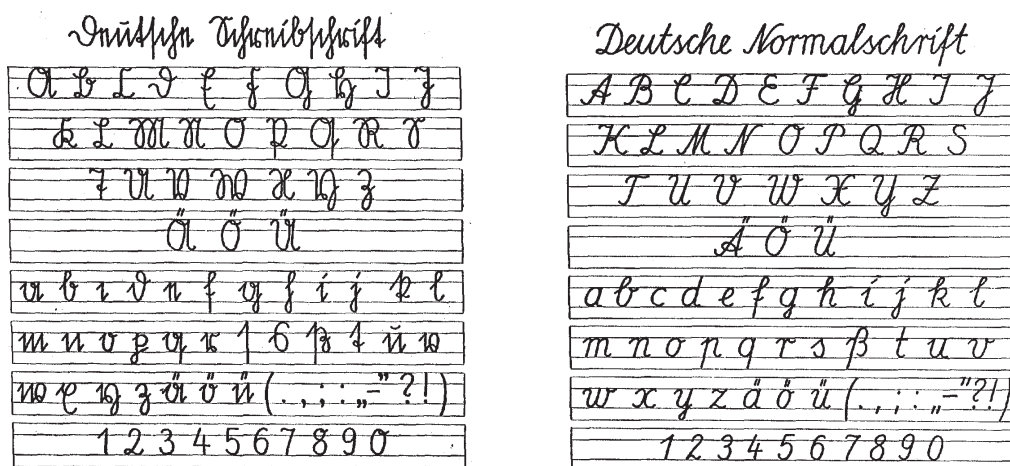 Deutſche Schreibſchrift
A B C D E F G H I J
K L M N O P Q R S
T U V W X Y Z
Ä Ö Ü
a b c d e f g h i j k l
m n o p q r ſ s ß t u v
w x y z ä ö ü ( . , ; : „ - " ? ! )
1 2 3 4 5 6 7 8 9 0
Deutsche Normalschrift
A B C D E F G H I J
K L M N O P Q R S
T U V W X Y Z
Ä Ö Ü
a b c d e f g h i j k l
m n o p q r s ß t u v
w x y z ä ö ü ( . , ; : „ - " ? ! )
1 2 3 4 5 6 7 8 9 0